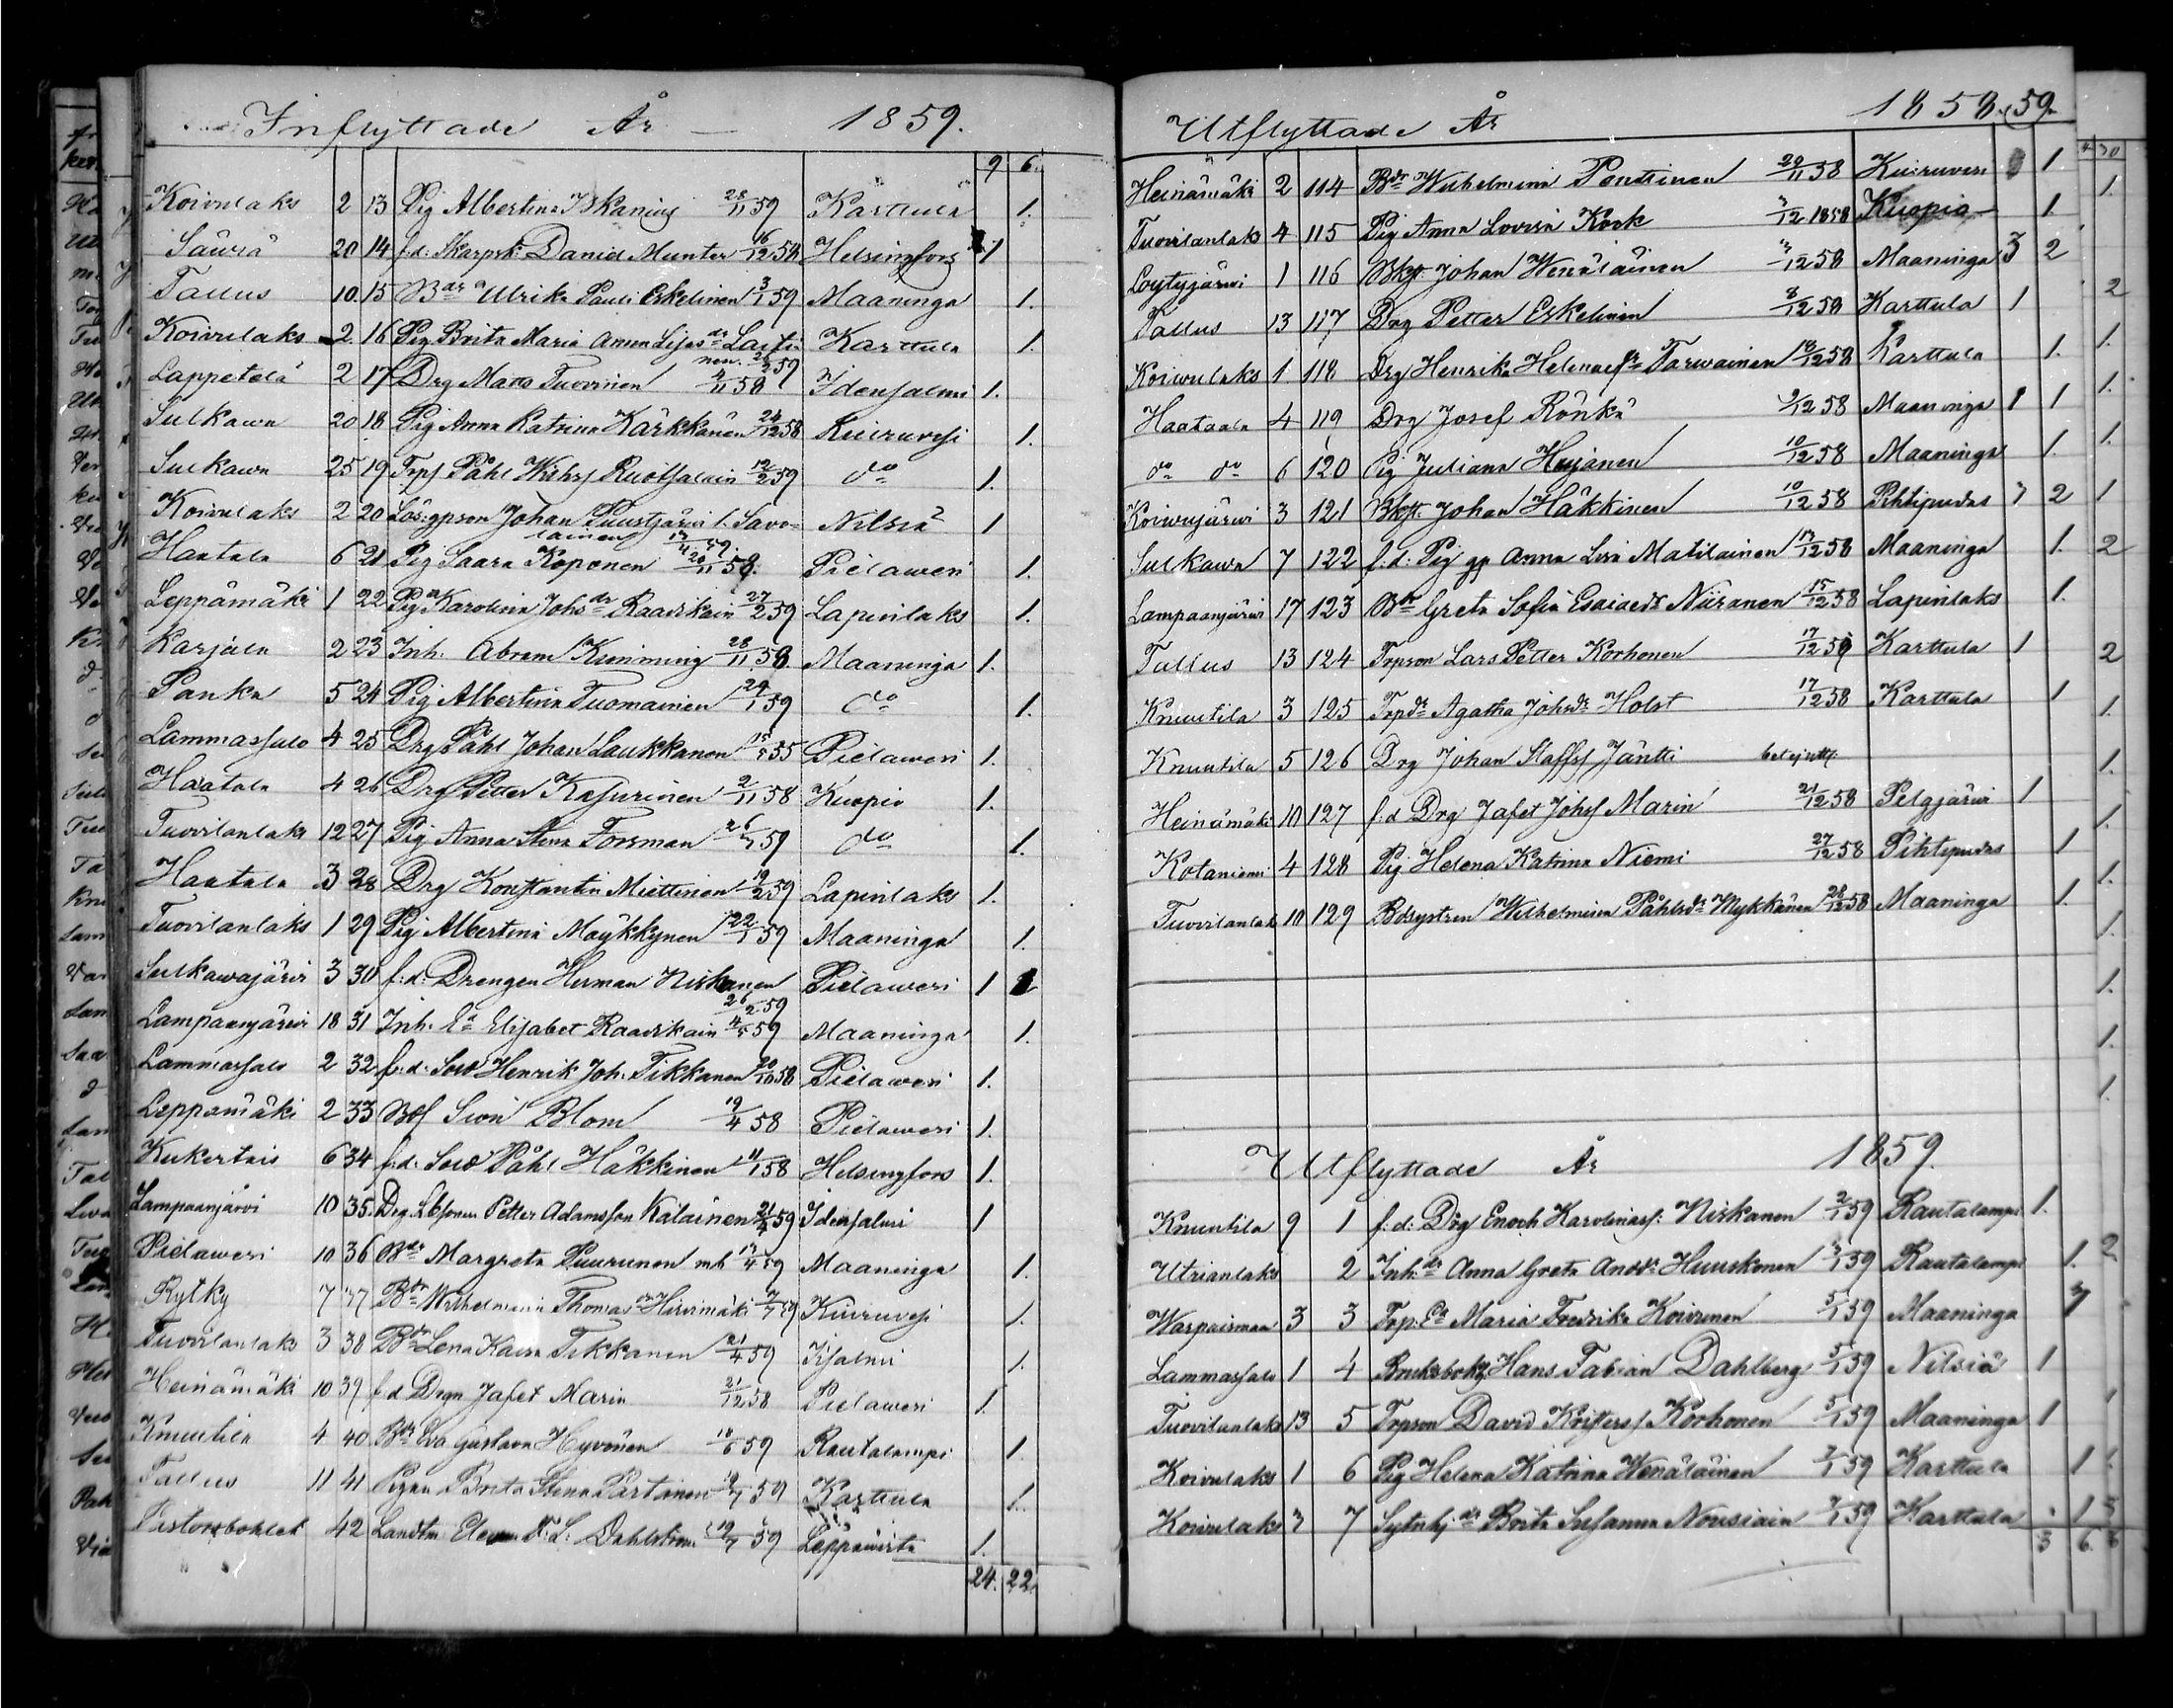 Inflyttade År 1859.
9 6.
Koivulaks 2 13 Pig Albertina Iskanius 28/11 59 Karttula 1.
Säviä 20 14 f.d. Skarpsk. Daniel Munter 16/12 58 Helsingfors 1
Tallus 10 15 Bdr Ulrika Pauli Eskelinen 3/1 59 Maaninga 1.
Koivulaks 2 16 Pig Brita Maria Karttula 1.
Lappetelä 2 17 Drg Matts Tuovinen 4/11 58 Idensalmi 1.
Sulkawa 20 18 Pig Anna Katrina Kärkkänen 24/12 58 Kiuruvesi 1.
Sulkawa 25 19 Påhl Wilhsf Ruotsalain 12/2 59 do 1.
Koivulaks 2 20 Lös. gpson Johan Puustjärvi l. Savo- Nilsiä 1
lainen 13/4 59.
Haatala 6 21 Pig Saara Koponen 20/11 58. Pielawesi 1.
Leppämäki 1 22 Pig Karolina Johsdr Raatikain 27/2 59 Lapinlaks 1.
Karjala 2 23 Inh. Abram Kumming 28/11 58. Maaninga 1.
Panka 5 24 Pig Albertina Tuomainen 24/1 59 do 1.
Lammassalo 4 25 Drg Påhl Johan Laukkanen 55 Pielawesi 1.
Haatala 4 26 Drg Petter Kasurinen 2/11 58 Kuopio 1.
Tuovilanlaks 12 27 Pig Anna Stina Forsman 59 do 1.
Haatala 3 28 Drg Konstantin Miettinen 19/2 59 Lapinlaks 1.
Tuovilanlaks 1 29 Pig Albertina Maykkynen 22/1 59 Maaninga 1.
Sulkawajärvi 3 30 f.d. Drengen Herman Niskanen Pielawesi 1
26/2 59
Lampaanjärvi 18 31 Inh. Ea Elisabet Raatikain 59 Maaninga 1.
Lammassalo 2 32 f.d. Sold Henrik Joh. Tikkanen 20/10 58 Pielawesi 1.
Leppämäki 2 33 Blom 19/4 58 Pielawesi 1.
Kukertais 6 34 f.d. Sold Påhl Häkkinen 11/1 58 Helsingfors 1.
Lampaanjärvi 10 35. Drg. Petter Adamsson Kälainen 59 Idensalmi 1
Pielawesi 10 36 Bdr Margreta Puurunen mh 13/4 59 Maaninga 1.
Rytky 7 37 Bdr Wilhelmina Thomasdr Hirvimäki 59 Kiuruvesi 1.
Tuovilanlaks 3 38 Bdr Lena Kaisa Tikkanen 21/4 59 Iisalmi 1.
Heinämäki 10 39 f d Drgn Jafet Marin 21/12 58 Pielawesi 1.
Knuutila 4 40 Bdr Eva Gustava Hyvönen 59 Rautalampi 1.
Tallus 11 41 Pigan Brita Stina Partanen 59 Karttula 1.
42 Landtm Dahlström 59 Leppävirta 1.
24. 22.
Utflyttade År 1858.(59.
Heinämäki 2 114 Bdr Wilhelmina Penttinen 29/11 58 Kiuruvesi 1
Tuovilanlaks 4 115 Pig Anna Lovisa Kock 3/12 1858 Kuopio 1
Löytyjärwi 1 116 Johan Wenäläinen 3/12 58 Maaninga 3 2
Tallus 13 117 Drg Petter Eskelinen 8/12 58 Karttula 1
Koiwulaks 1 118 Drg Henrika Helena Tarwainen 58 Karttula 1.
Haataala 4 119 Drg Josef Rönkä 9/12 58 Maaninga 1 1
do do 6 120 Pig Juliana Hujanen 10/12 58 Maaninga 1.
Koiwujärwi 3 121 Johan Häkkinen 10/12 58 Pihtipudas 3 2
Sulkawa 7 122 f.d. Pig gp Anna Lisa Matilainen 13/12 58 Maaninga 1.
Lampaanjärwi 17 123 Greta Sofia Esaiaedr Niiranen 15/12 58 Lapinlaks 1.
Tallus 13 124 Trpson Lars Petter Korhonen 17/12 59 Karttula 1
Knuutila 3 125 Trpdr Agatha Johsdr Holst 17/12 58 Karttula 1
Knuutila 5 126 Drg Johan Staffsf Jäntti
Heinämäki 10 127 f.d Drg Jafet Johsf Marin 21/12 58 Pelgjärvi 1
Kotaniemi 4 128 Pig Helena Katrina Niemi 27/12 58 Pihtipudas 1
Tuovilanlak 10 129 Wilhelmina Påhlsdr Mykkänen 28/12 58 Maaninga 1.
Utflyttade År 1859.
Knuutila 9 1 f.d. Drg Enoch Karolinasf. Niskanen 2/1 59 Rautalampi 1.
Utrianlaks 2 Inh.dr Anna Greta Andrdr Huuskonen 3/1 59 Rautalampi 1.
Warpaismaa 3 3 Trp. Ea Maria Fredrika Koivunen 5/1 59 Maaninga 1
Lammassalo 1 4 Hans Fabian Dahlberg 5/1 59 Nilsiä 1
Tuovilanlaks 13 5 Trpson David Kristersf Korhonen 5/1 59 Maaninga 1
Koivulaks 1 6 Pig Helena Katrina Wenäläinen 7/1 59 Karttula 1
Koivulaks 3 7 Brita Susanna Nousiain 7/1 59 Karttula 1
3 6.